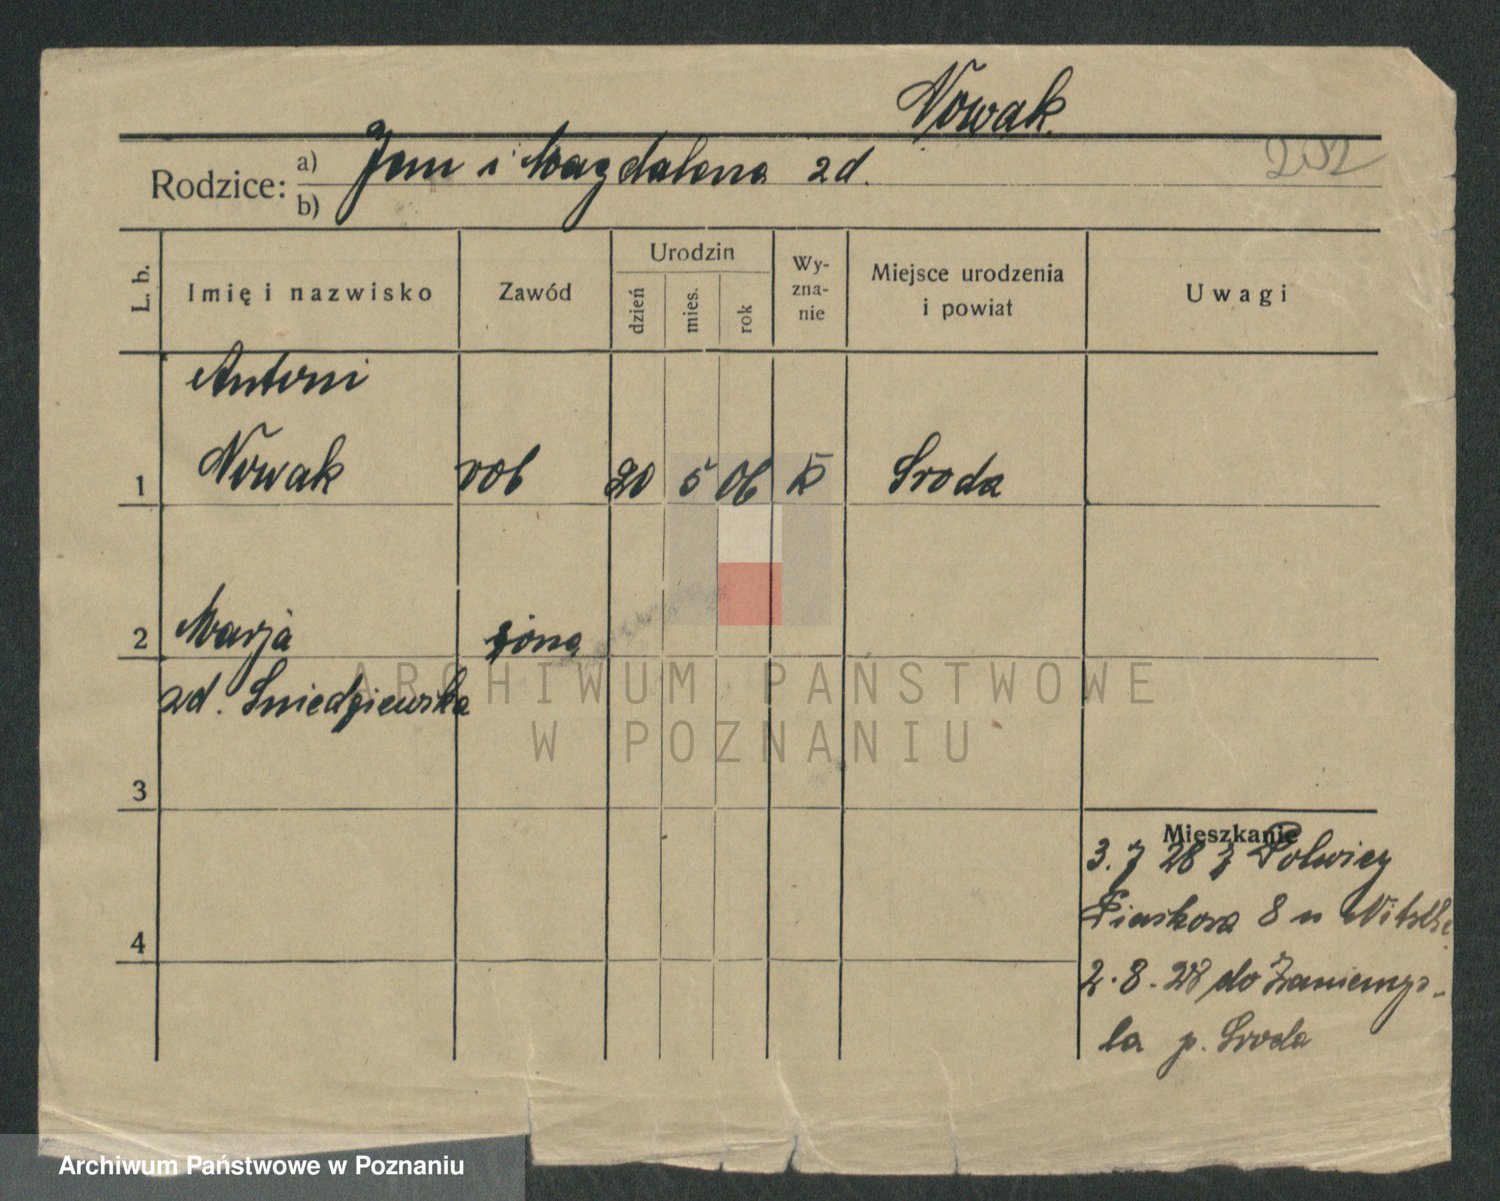 Nowak
202
Rodzice: a) Jan i Magdalena zd.
b)
L. b. Imię i nazwisko Zawód Urodzin dzień mies. rok Wy-zna-nie Miejsce urodzenia i powiat Uwagi
Antoni
1 Nowak rob 20 5 06 k Sroda
2 Marja żona
zd. Sniedziewska
ARCHIWUM PAŃSTWOWE
W POZNANIU
3
Mieszkanie
3. 7 28 z Polwicy
Piaskowa 8 u
4
2. 8. 28 do Zaniemyś-
la p. Sroda
Archiwum Państwowe w Poznaniu